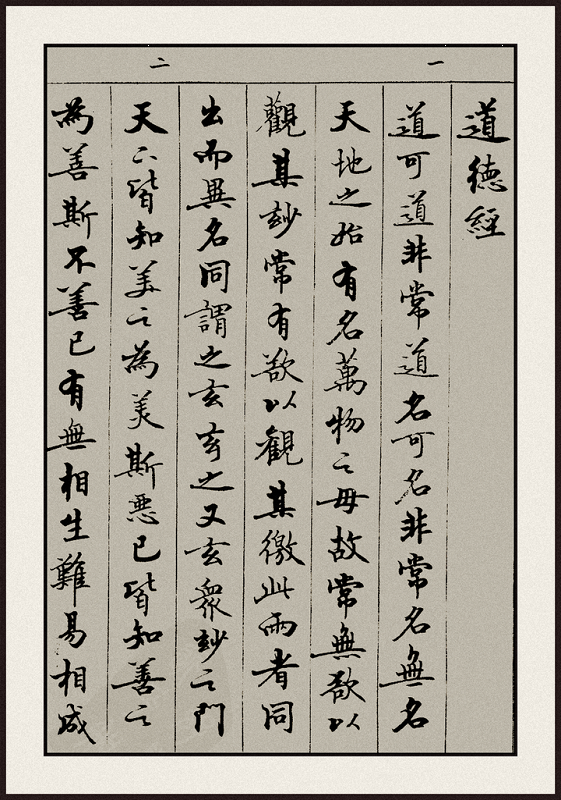 一
二
道徳經
道可道非常道名可名非常名無名
天地之始有名萬物之母故常無欲以
觀其玅常有欲以觀其徼此兩者同
出而異名同謂之玄玄之又玄衆玅之門
天下皆知美之為美斯惡已皆知善之
為善斯不善已有無相生難易相成